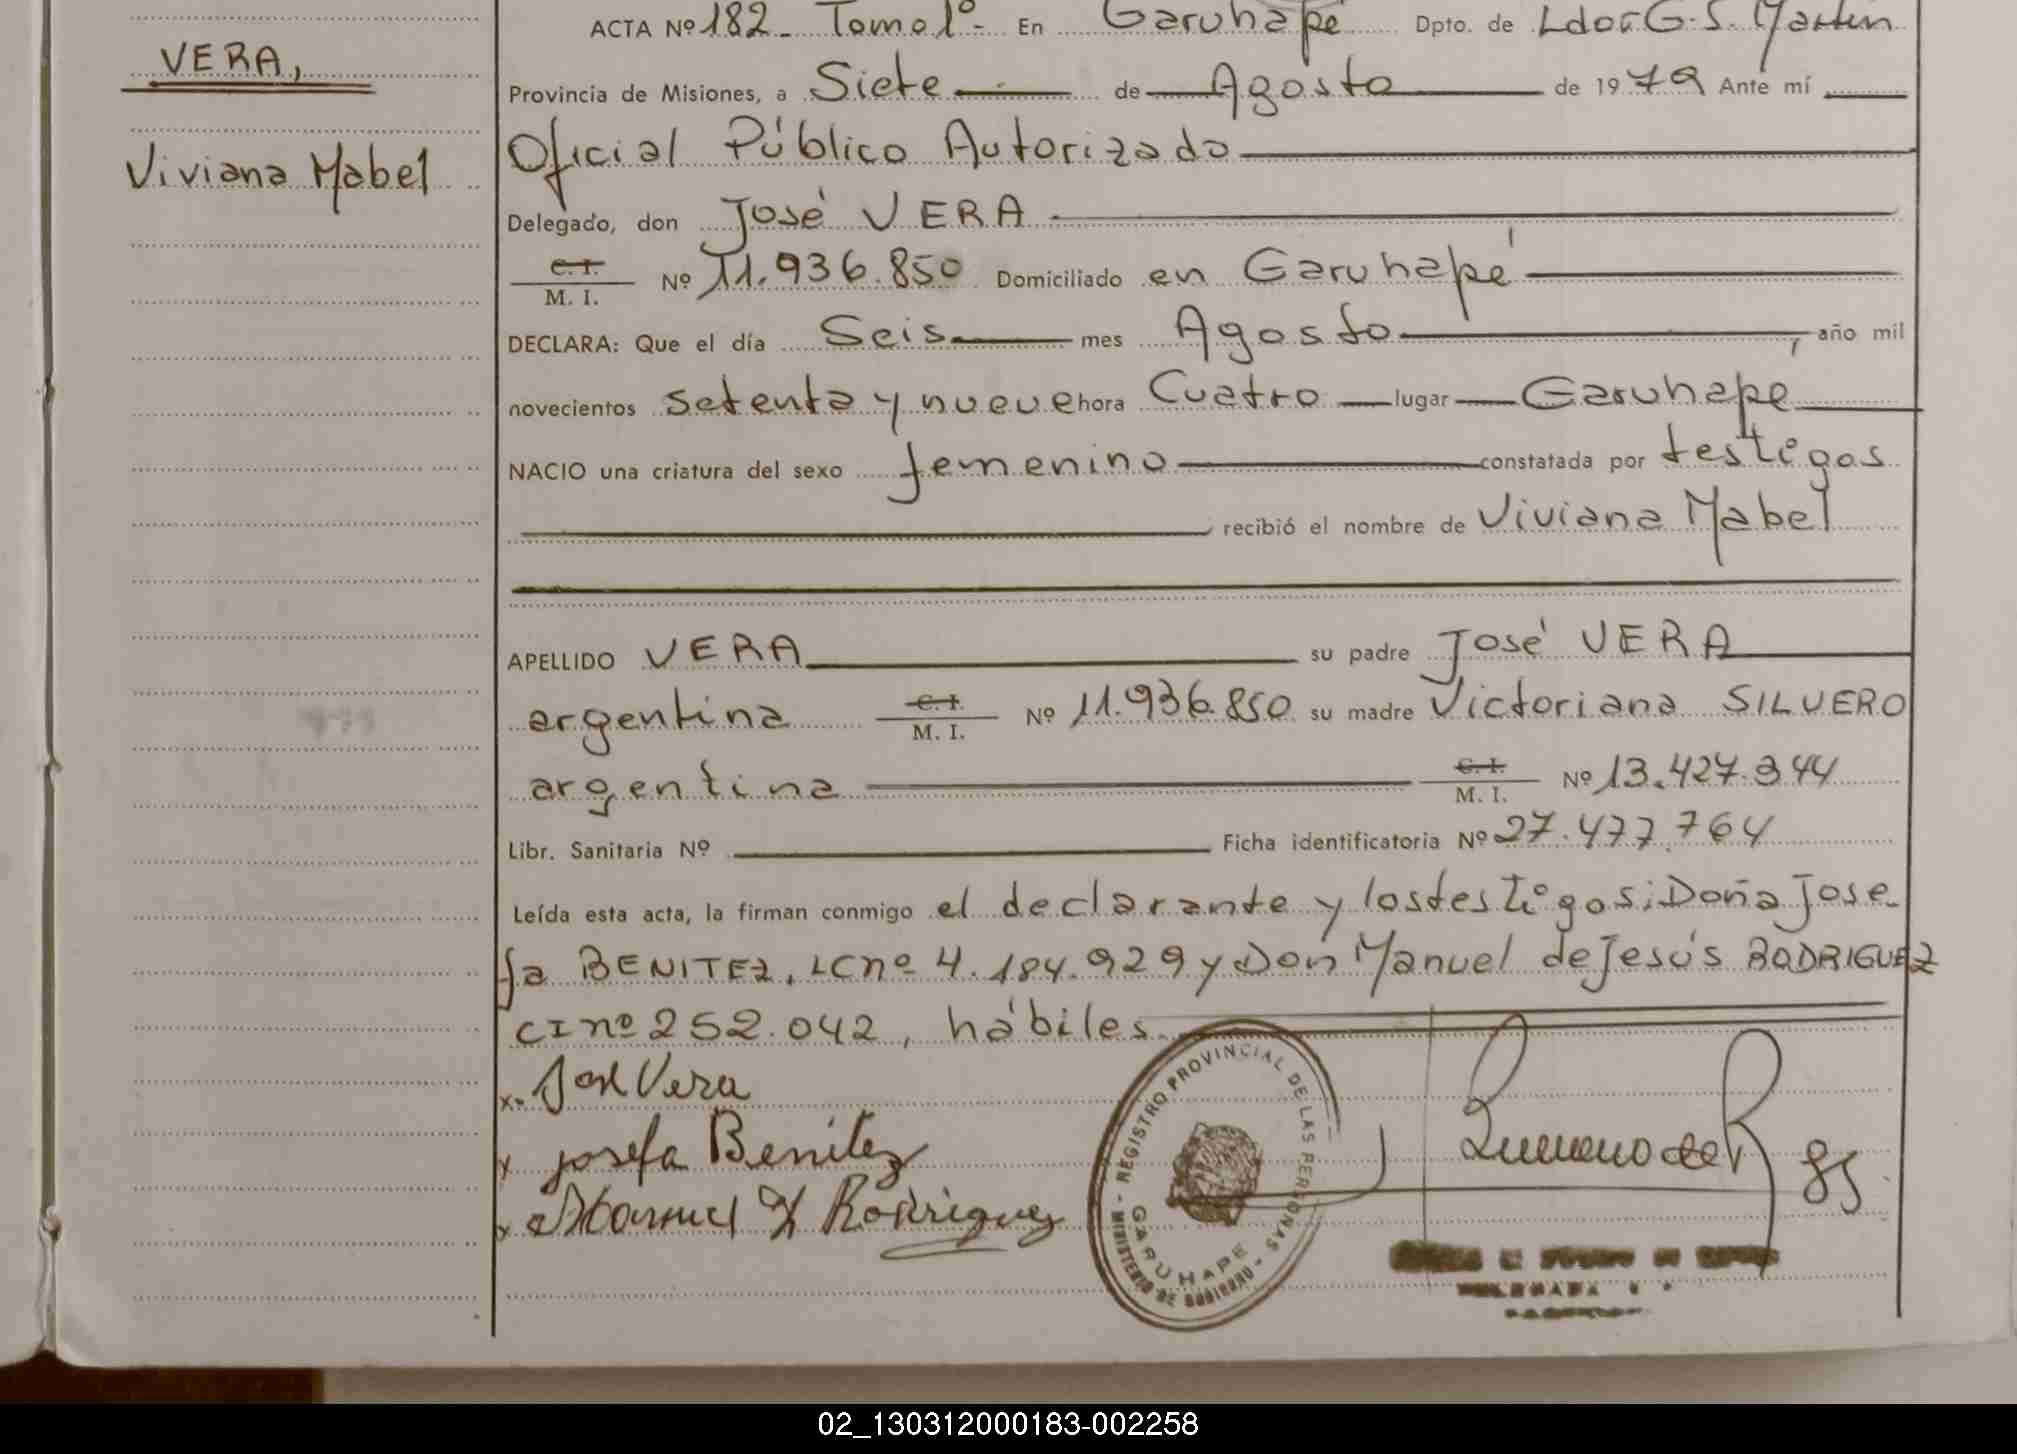 VERA,
Viviana Mabel
ACTA Nº 182 - Tomo 1º - En Garuhapé Dpto. de Ldor. G. S. Martin
Provincia de Misiones, a Siete de Agosto de 1979 Ante mí
Oficial Público Autorizado
Delegado, don José VERA
C. I. / M. I. Nº 11.936.850 Domiciliado en Garuhapé
DECLARA: Que el día Seis mes Agosto, año mil
novecientos setenta y nueve hora Cuatro lugar Garuhape
NACIO una criatura del sexo femenino constatada por testigos
recibió el nombre de Viviana Mabel
APELLIDO VERA su padre José VERA
argentina C. I. / M. I. Nº 11.936.850 su madre Victoriana SILVERO
argentina C. I. / M. I. Nº 13.427.344
Libr. Sanitaria Nº Ficha identificatoria Nº 27.477.764
Leída esta acta, la firman conmigo el declarante y los testigos: Doña Jose
fa BENITEZ, LC nº 4.184.929 y Don Manuel de Jesús RODRIGUEZ
CI nº 252.042, hábiles.
x. José Vera
x josefa Benítez
x Manuel J Rodriguez
REGISTRO PROVINCIAL DE LAS PERSONAS - MINISTERIO DE GOBIERNO -
GARUHAPE
85
02_130312000183-002258